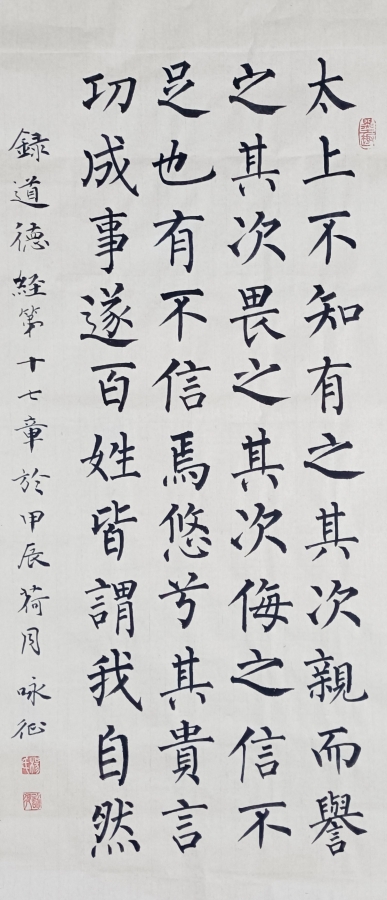 太上不知有之其次親而譽
之其次畏之其次侮之信不
足也有不信焉悠兮其貴言
功成事遂百姓皆謂我自然
録道德經第十七章於甲辰荷月咏征